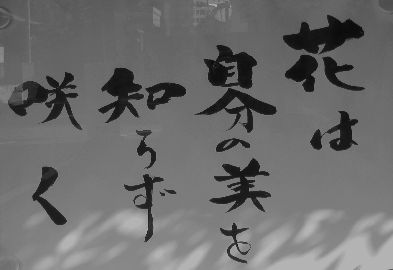 花は
自分の美を
知らず
咲く